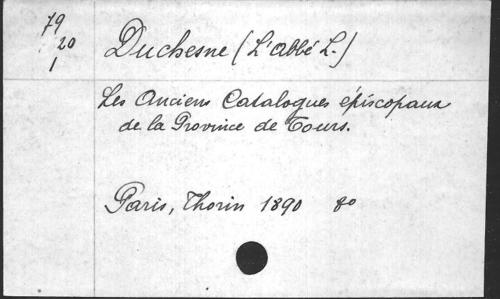 79
20
1
Duchesne (L'abbé L.)
Les Anciens Catalogues épiscopaux
de la Province de Tours.
Paris, Thorin 1890 8o